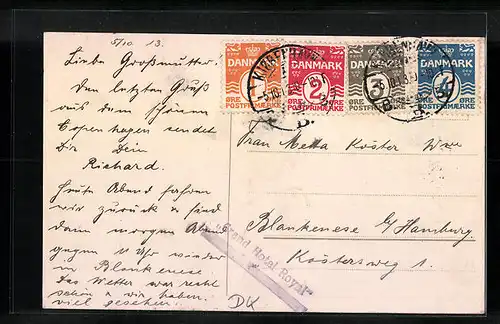 5/10 13.
Liebe Großmutter!
Den letzten Gruß
aus dem schönen
Copenhagen sendet
Dir Dein
Richard.
Heute Abend fahren
wir zurück & sind
dann morgen Abend
gegen 11 Uhr wieder
in Blankenese.
Das Wetter war recht
schön & wir haben
viel gesehen.
DANMARK
1
ØRE
POSTFRIMÆRKE
DANMARK
2
ØRE
POSTFRIMÆRKE
DANMARK
3
ØRE
POSTFRIMÆRKE
DANMARK
4
ØRE
POSTFRIMÆRKE
KJØBENHAVN
B.
Frau Metta Köster Wwe
Blankenese b/Hamburg.
Köstersweg 1.
"Grand Hotel Royal"
DK